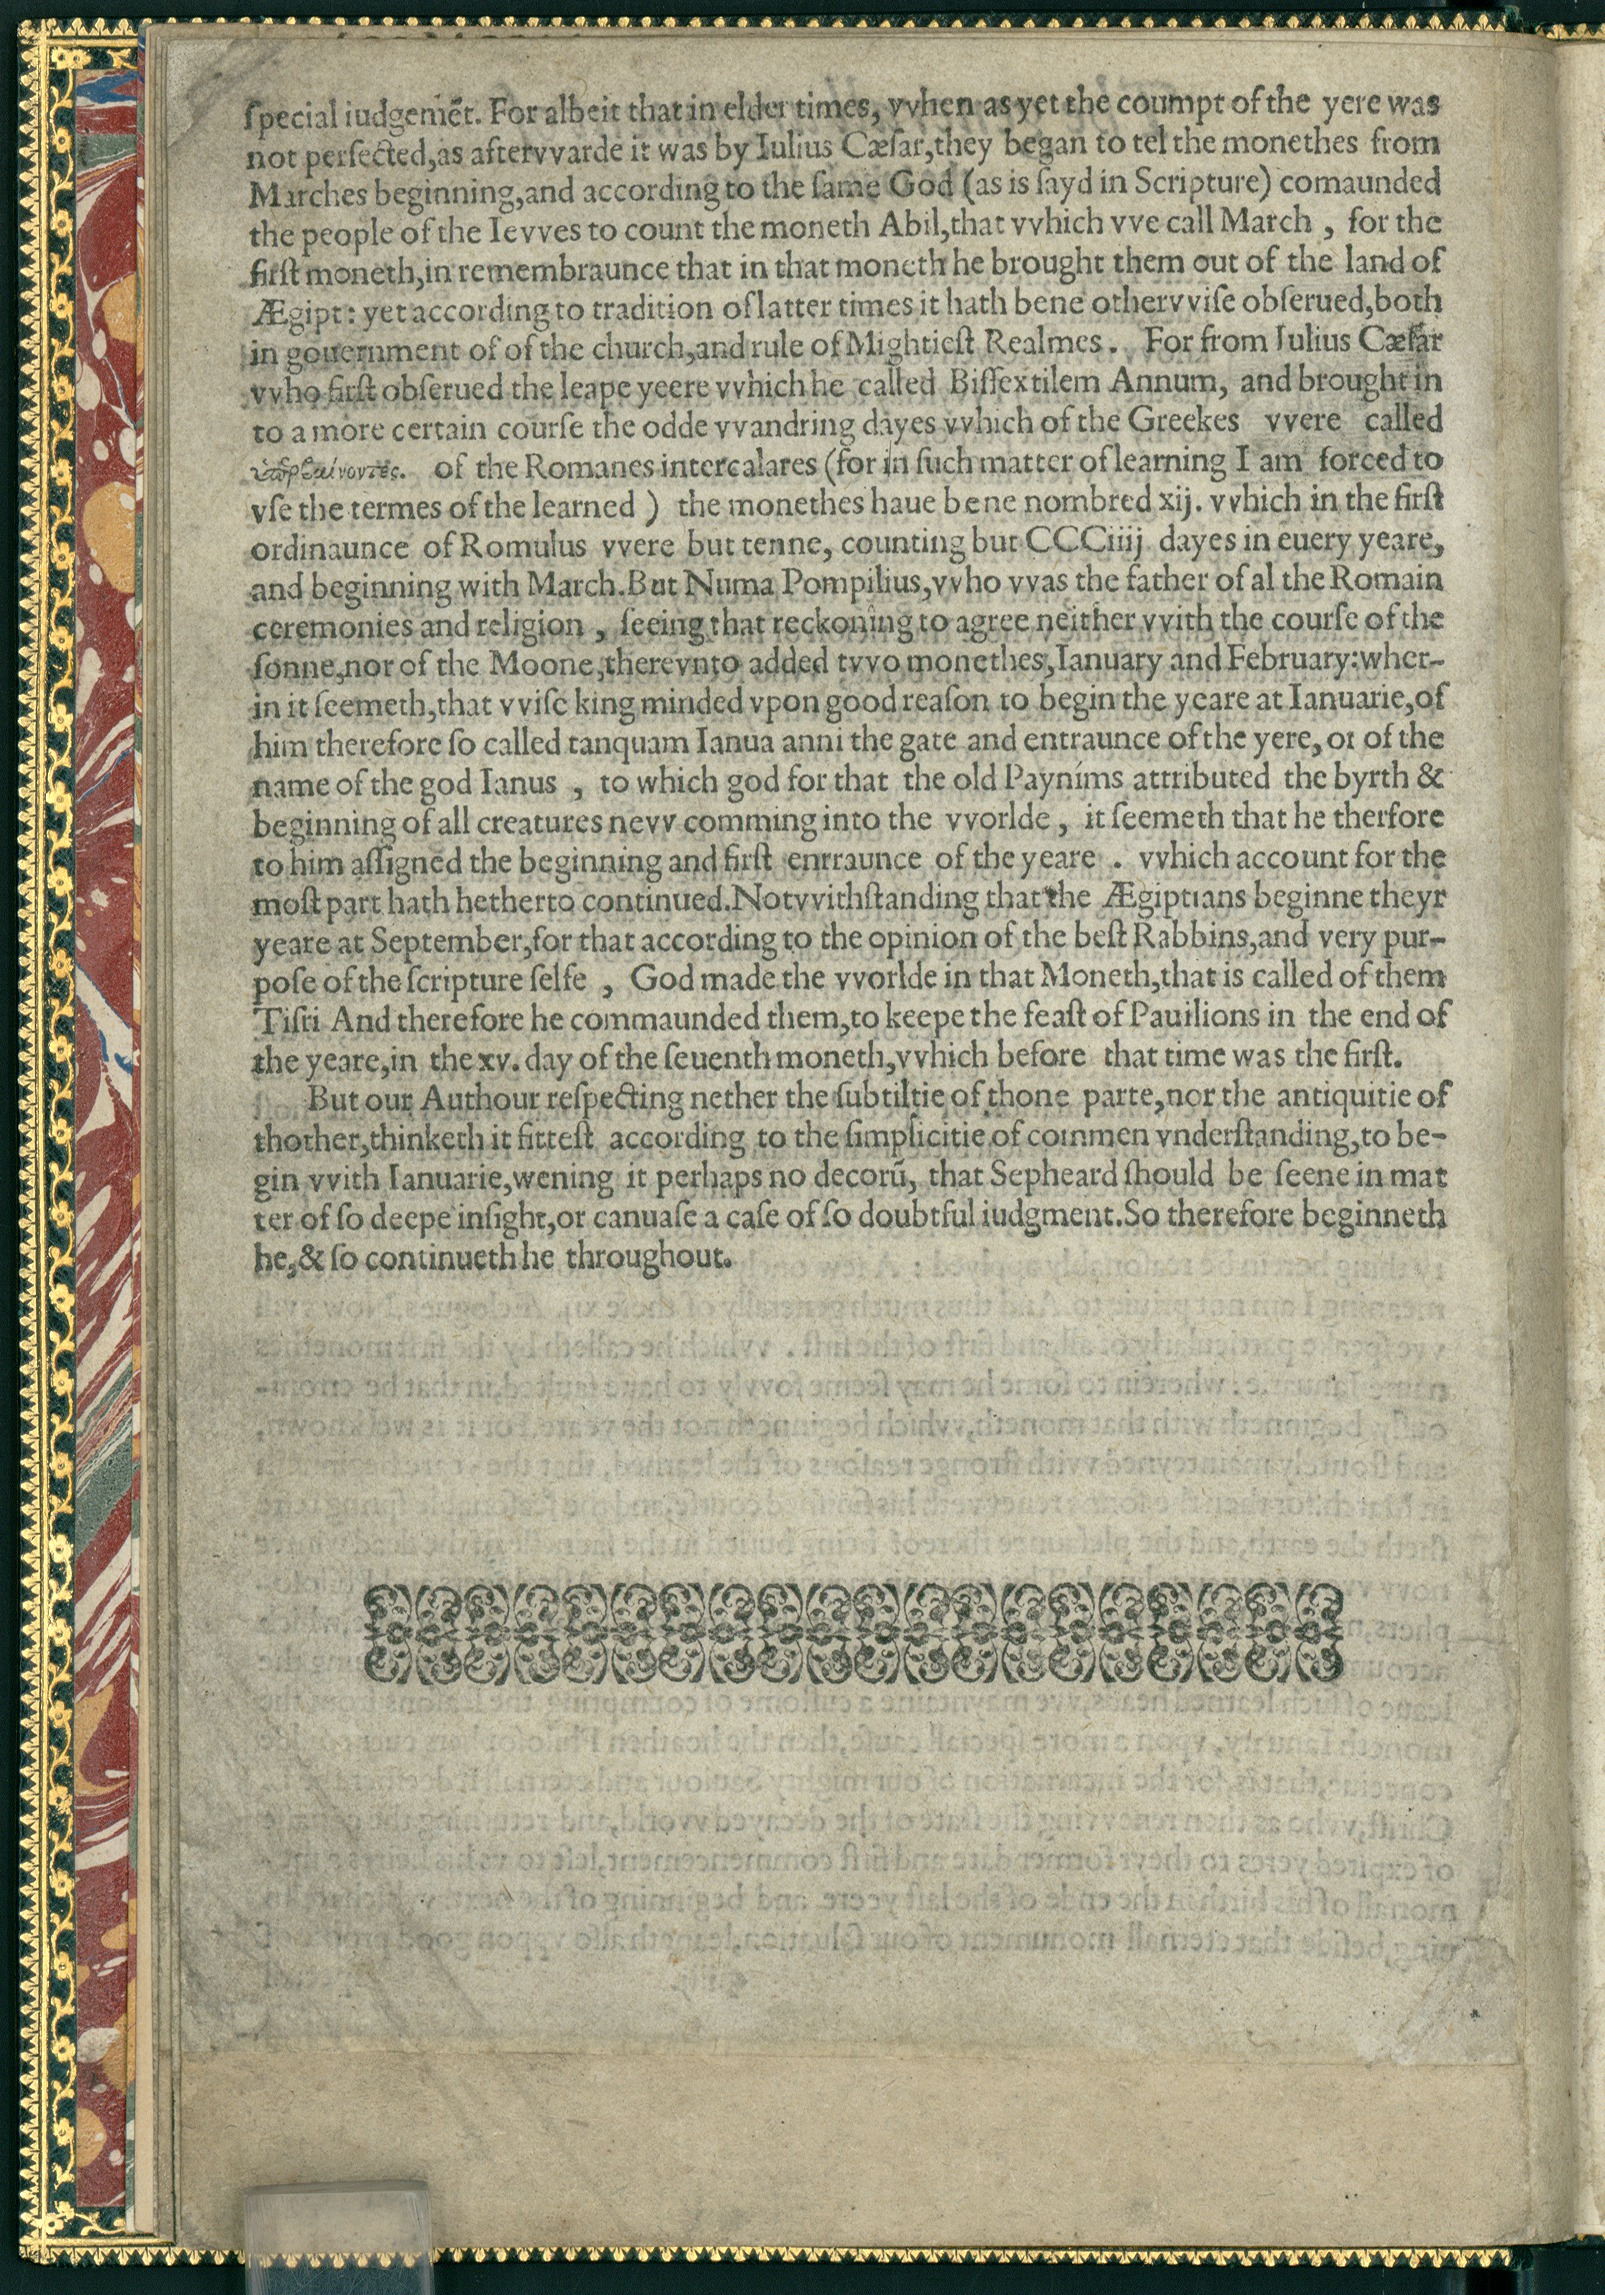 ſpecial iudgemẽt. For albeit that in elder times, vvhen as yet the coumpt of the yere was
not perfected,as aftervvarde it was by Iulius Cæſar,they began to tel the monethes from
Marches beginning,and according to the ſame God (as is ſayd in Scripture) comaunded
the people of the Ievves to count the moneth Abil,that vvhich vve call March , for the
firſt moneth,in remembraunce that in that moneth he brought them out of the land of
Ægipt: yet according to tradition of latter times it hath bene othervviſe obſerued,both
in gouernment of of the church,and rule of Mightieſt Realmes. For from Iulius Cæſar
vvho firſt obſerued the leape yeere vvhich he called Biſſextilem Annum, and brought in
to a more certain courſe the odde vvandring dayes vvhich of the Greekes vvere called
of the Romanes intercalares (for in ſuch matter of learning I am forced to
vſe the termes of the learned ) the monethes haue bene nombred xij. vvhich in the firſt
ordinaunce of Romulus vvere but tenne, counting but CCCiiij dayes in euery yeare,
and beginning with March.But Numa Pompilius,vvho vvas the father of al the Romain
ceremonies and religion , ſeeing that reckoning to agree neither vvith the courſe of the
ſonne,nor of the Moone,therevnto added tvvo monethes,Ianuary and February:wher-
in it ſeemeth,that vviſe king minded vpon good reaſon to begin the yeare at Ianuarie,of
him therefore ſo called tanquam Ianua anni the gate and entraunce of the yere, or of the
name of the god Ianus , to which god for that the old Paynims attributed the byrth &
beginning of all creatures nevv comming into the vvorlde , it ſeemeth that he therfore
to him aſſigned the beginning and firſt enrraunce of the yeare . vvhich account for the
moſt part hath hetherto continued.Notvvithſtanding that the Ægiptians beginne theyr
yeare at September,for that according to the opinion of the beſt Rabbins,and very pur-
poſe of the ſcripture ſelfe , God made the vvorlde in that Moneth,that is called of them
Tiſri And therefore he commaunded them,to keepe the feaſt of Pauilions in the end of
the yeare,in the xv. day of the ſeuenth moneth,vvhich before that time was the firſt.
But our Authour reſpecting nether the ſubtiltie of thone parte,nor the antiquitie of
thother,thinketh it fitteſt according to the ſimplicitie of commen vnderſtanding,to be-
gin vvith Ianuarie,wening it perhaps no decorũ, that Sepheard ſhould be ſeene in mat
ter of ſo deepe inſight,or canuaſe a caſe of ſo doubtful iudgment.So therefore beginneth
he,& ſo continueth he throughout.